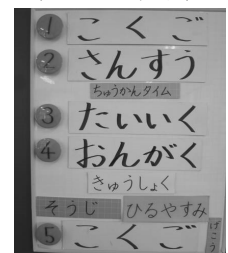 1 こくご
2 さんすう
ちゅうかんタイム
3 たいいく
4 おんがく
きゅうしょく
そうじ ひるやすみ
5 こくご
げこう